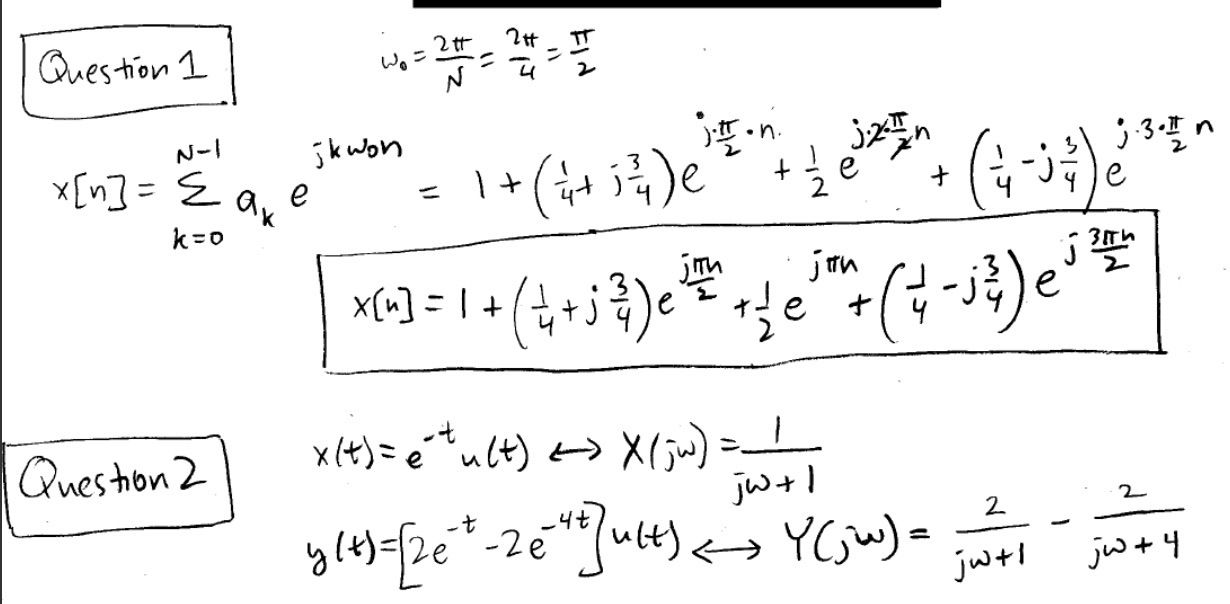 Question 1
ω₀ = 2π/N = 2π/4 = π/2
x[n] = Σ_{k=0}^{N-1} a_k e^{jkω0n} = 1 + (1/4 + j3/4) e^{j·π/2·n} + 1/2 e^{j·2·π/2 n} + (1/4 - j3/4) e^{j·3·π/2 n}
x[n] = 1 + (1/4 + j3/4) e^{jπn/2} + 1/2 e^{jπn} + (1/4 - j3/4) e^{j3πn/2}
Question 2
x(t) = e^{-t} u(t) ↔ X(jω) = 1/(jω+1)
y(t) = [2e^{-t} - 2e^{-4t}] u(t) ↔ Y(jω) = 2/(jω+1) - 2/(jω+4)